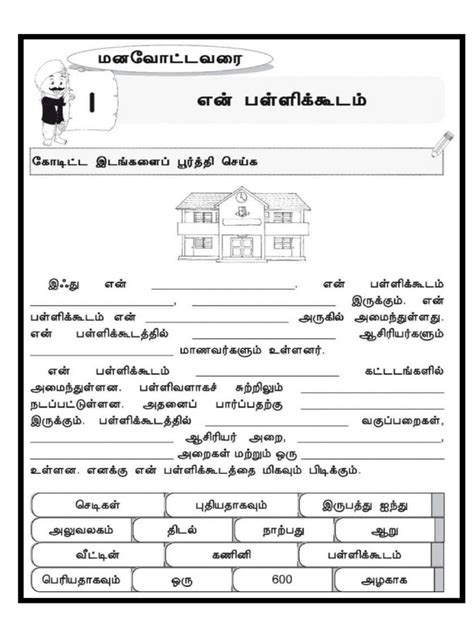 மனவோட்டவரை
1
என் பள்ளிக்கூடம்
கோடிட்ட இடங்களைப் பூர்த்தி செய்க
இஃது என் ____________. என் பள்ளிக்கூடம்
____________, ____________ இருக்கும். என்
பள்ளிக்கூடம் என் ____________ அருகில் அமைந்துள்ளது.
என் பள்ளிக்கூடத்தில் ____________ ஆசிரியர்களும்
____________ மாணவர்களும் உள்ளனர்.
என் பள்ளிக்கூடம் ____________ கட்டடங்களில்
அமைந்துள்ளன. பள்ளிவளாகச் சுற்றிலும் ____________
நடப்பட்டுள்ளன. அதனைப் பார்ப்பதற்கு ____________
இருக்கும். பள்ளிக்கூடத்தில் ____________ வகுப்பறைகள்,
____________ ஆசிரியர் அறை, ____________,
____________ அறைகள் மற்றும் ஒரு ____________
உள்ளன. எனக்கு என் பள்ளிக்கூடத்தை மிகவும் பிடிக்கும்.
செடிகள் புதியதாகவும் இருபத்து ஐந்து
அலுவலகம் திடல் நாற்பது ஆறு
வீட்டின் கணினி பள்ளிக்கூடம்
பெரியதாகவும் ஒரு 600 அழகாக